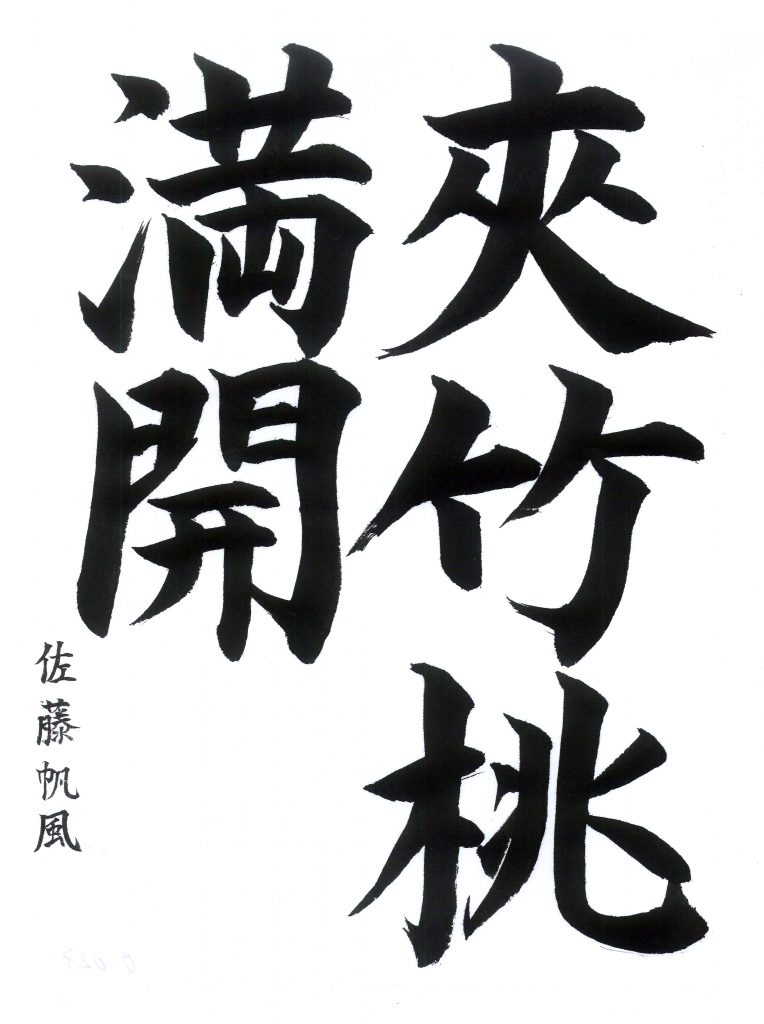 夾竹桃
満開
佐藤帆風